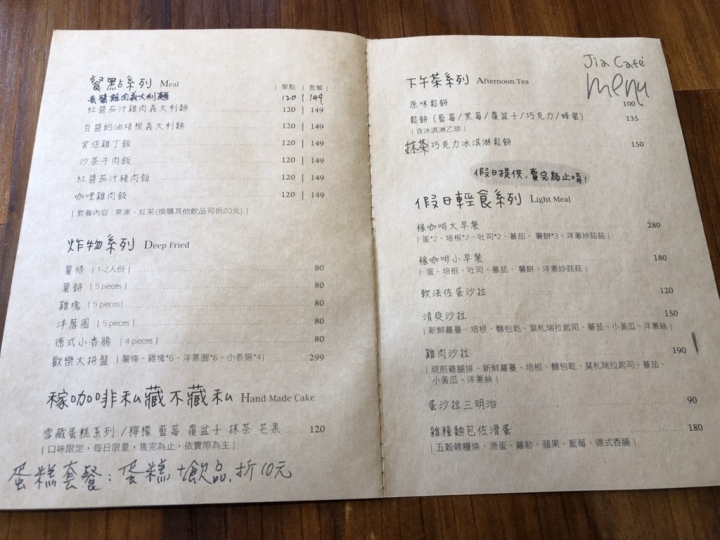 餐點系列 Meal | 單點 | 套餐 |
青醬雞肉義大利麵 120 | 149
紅醬茄汁雞肉義大利麵 120 | 149
白醬奶油培根義大利麵 120 | 149
宮保雞丁飯 120 | 149
沙茶牛肉飯 120 | 149
紅醬茄汁豬肉飯 120 | 149
咖哩雞肉飯 120 | 149
| 套餐內容: 果凍、紅茶(換購其他飲品可折20元) |
炸物系列 Deep Fried
薯條 | 1-2人份 | 80
薯餅 | 5 pieces | 80
雞塊 | 5 pieces | 80
洋蔥圈 | 5 pieces | 80
德式小香腸 | 4 pieces | 80
歡樂大拼盤 | 薯條、雞塊*5、洋蔥圈*6、小香腸*4 | 299
稼咖啡私藏不藏私 Hand Made Cake
雪藏蛋糕系列 / 檸檬 藍莓 覆盆子 抹茶 芒果 120
| 口味限定,每日限量,售完為止,依實際為主 |
蛋糕套餐:蛋糕+飲品,折10元
Jia Café
menu
下午茶系列 Afternoon Tea
原味鬆餅 100
鬆餅 (藍莓/黑莓/覆盆子/巧克力/蜂蜜) 135
| 含冰淇淋乙球 |
抹茶巧克力冰淇淋鬆餅 150
假日提供,賣完為止唷!
假日輕食系列 Light Meal
稼咖啡大早餐 280
| 蛋*2、培根*2、吐司*2、蕃茄、薯餅*3、洋蔥炒菇菇 |
稼咖啡小早餐 180
| 蛋、培根、吐司、蕃茄、薯餅、洋蔥炒菇菇 |
軟法佐蛋沙拉 120
清爽沙拉 150
| 新鮮蘿蔓、培根、麵包乾、莫札瑞拉起司、蕃茄、小黃瓜、洋蔥絲 |
雞肉沙拉 190
| 現煎雞腿排、新鮮蘿蔓、培根、麵包乾、莫札瑞拉起司、蕃茄、
小黃瓜、洋蔥絲 |
蛋沙拉三明治 90
雜糧麵包佐滑蛋 180
| 五穀雜糧條、滑蛋、蘿勒、蘋果、藍莓、德式香腸 |